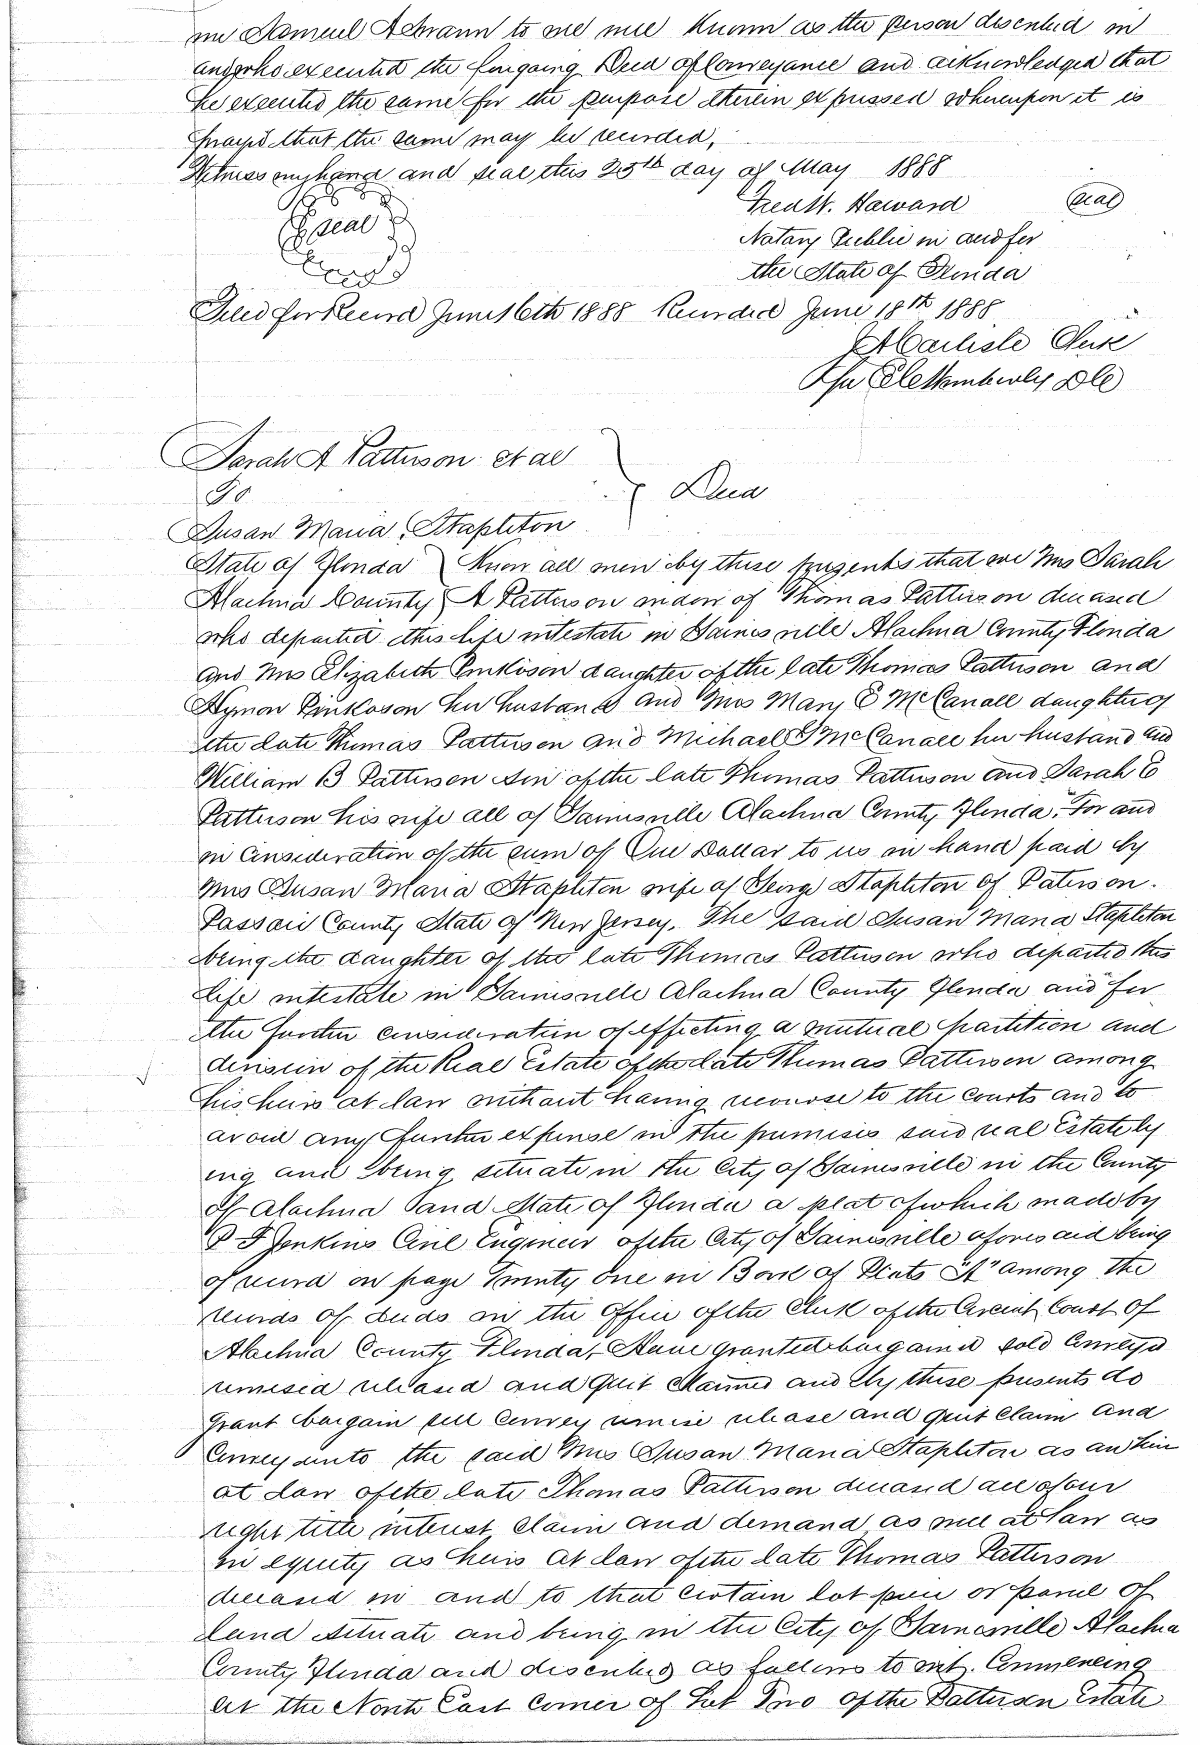 me Samuel Achrann to me well known as the person described in
and who executed the forgoing Deed of Conveyance and acknowledged that
he executed the same for the purpose therein expressed whereupon it is
prayed that the same may be recorded,
Witness my hand and seal this 25th day of May 1888
Fred W. Haward seal
seal
Notary Public in and for
the State of Florida
Filed for Record June 16th 1888 Recorded June 18th 1888
Carlisle Clerk
Per Wimberly DC
Sarah A Patterson et al
To } Deed
Susan Maria Stapleton
State of Florida } Know all men by these presents that we Mrs Sarah
Alachua County } A Patterson widow of Thomas Patterson deceased
who departed this life intestate in Gainesville Alachua County Florida
and Mrs Elizabeth Pinkoson daughter of the late Thomas Patterson and
Hymon Pinkoson her husband and Mrs Mary E McCanall daughter of
the late Thomas Patterson and Michael J McCanall her husband and
William B Patterson son of the late Thomas Patterson and Sarah E
Patterson his wife all of Gainesville Alachua County Florida, For and
in Consideration of the sum of One Dollar to us in hand paid by
Mrs Susan Maria Stapleton wife of George Stapleton of Paterson.
Passaic County State of New Jersey. The said Susan Maria Stapleton
being the daughter of the late Thomas Patterson who departed this
life intestate in Gainesville Alachua County Florida and for
the further consideration of effecting a mutual partition and
division of the Real Estate of the late Thomas Patterson among
his heirs at law without having recourse to the courts and to
avoid any further expense in the premises said real Estate ly
ing and being situate in the City of Gainesville in the County
of Alachua and State of Florida a plat of which made by
P F Jenkins Civil Engineer of the City of Gainesville aforesaid being
of record on page Twenty One in Book of Plats "A" among the
records of deeds in the Office of the Clerk of the Circuit Court of
Alachua County Florida, Have granted bargained sold conveyed
remised released and quit Claimed and by these presents do
grant bargain sell Convey remise release and quit Claim and
Convey unto the said Mrs Susan Maria Stapleton as an heir
at Law of the late Thomas Patterson deceased all of our
right title interest claim and demand as well at Law as
in equity as heirs at law of the late Thomas Patterson
deceased in and to that certain lot piece or parcel of
land situate and being in the City of Gainesville Alachua
County Florida and described as follows to wit. Commencing
at the North East Corner of Lot Two of the Patterson Estate